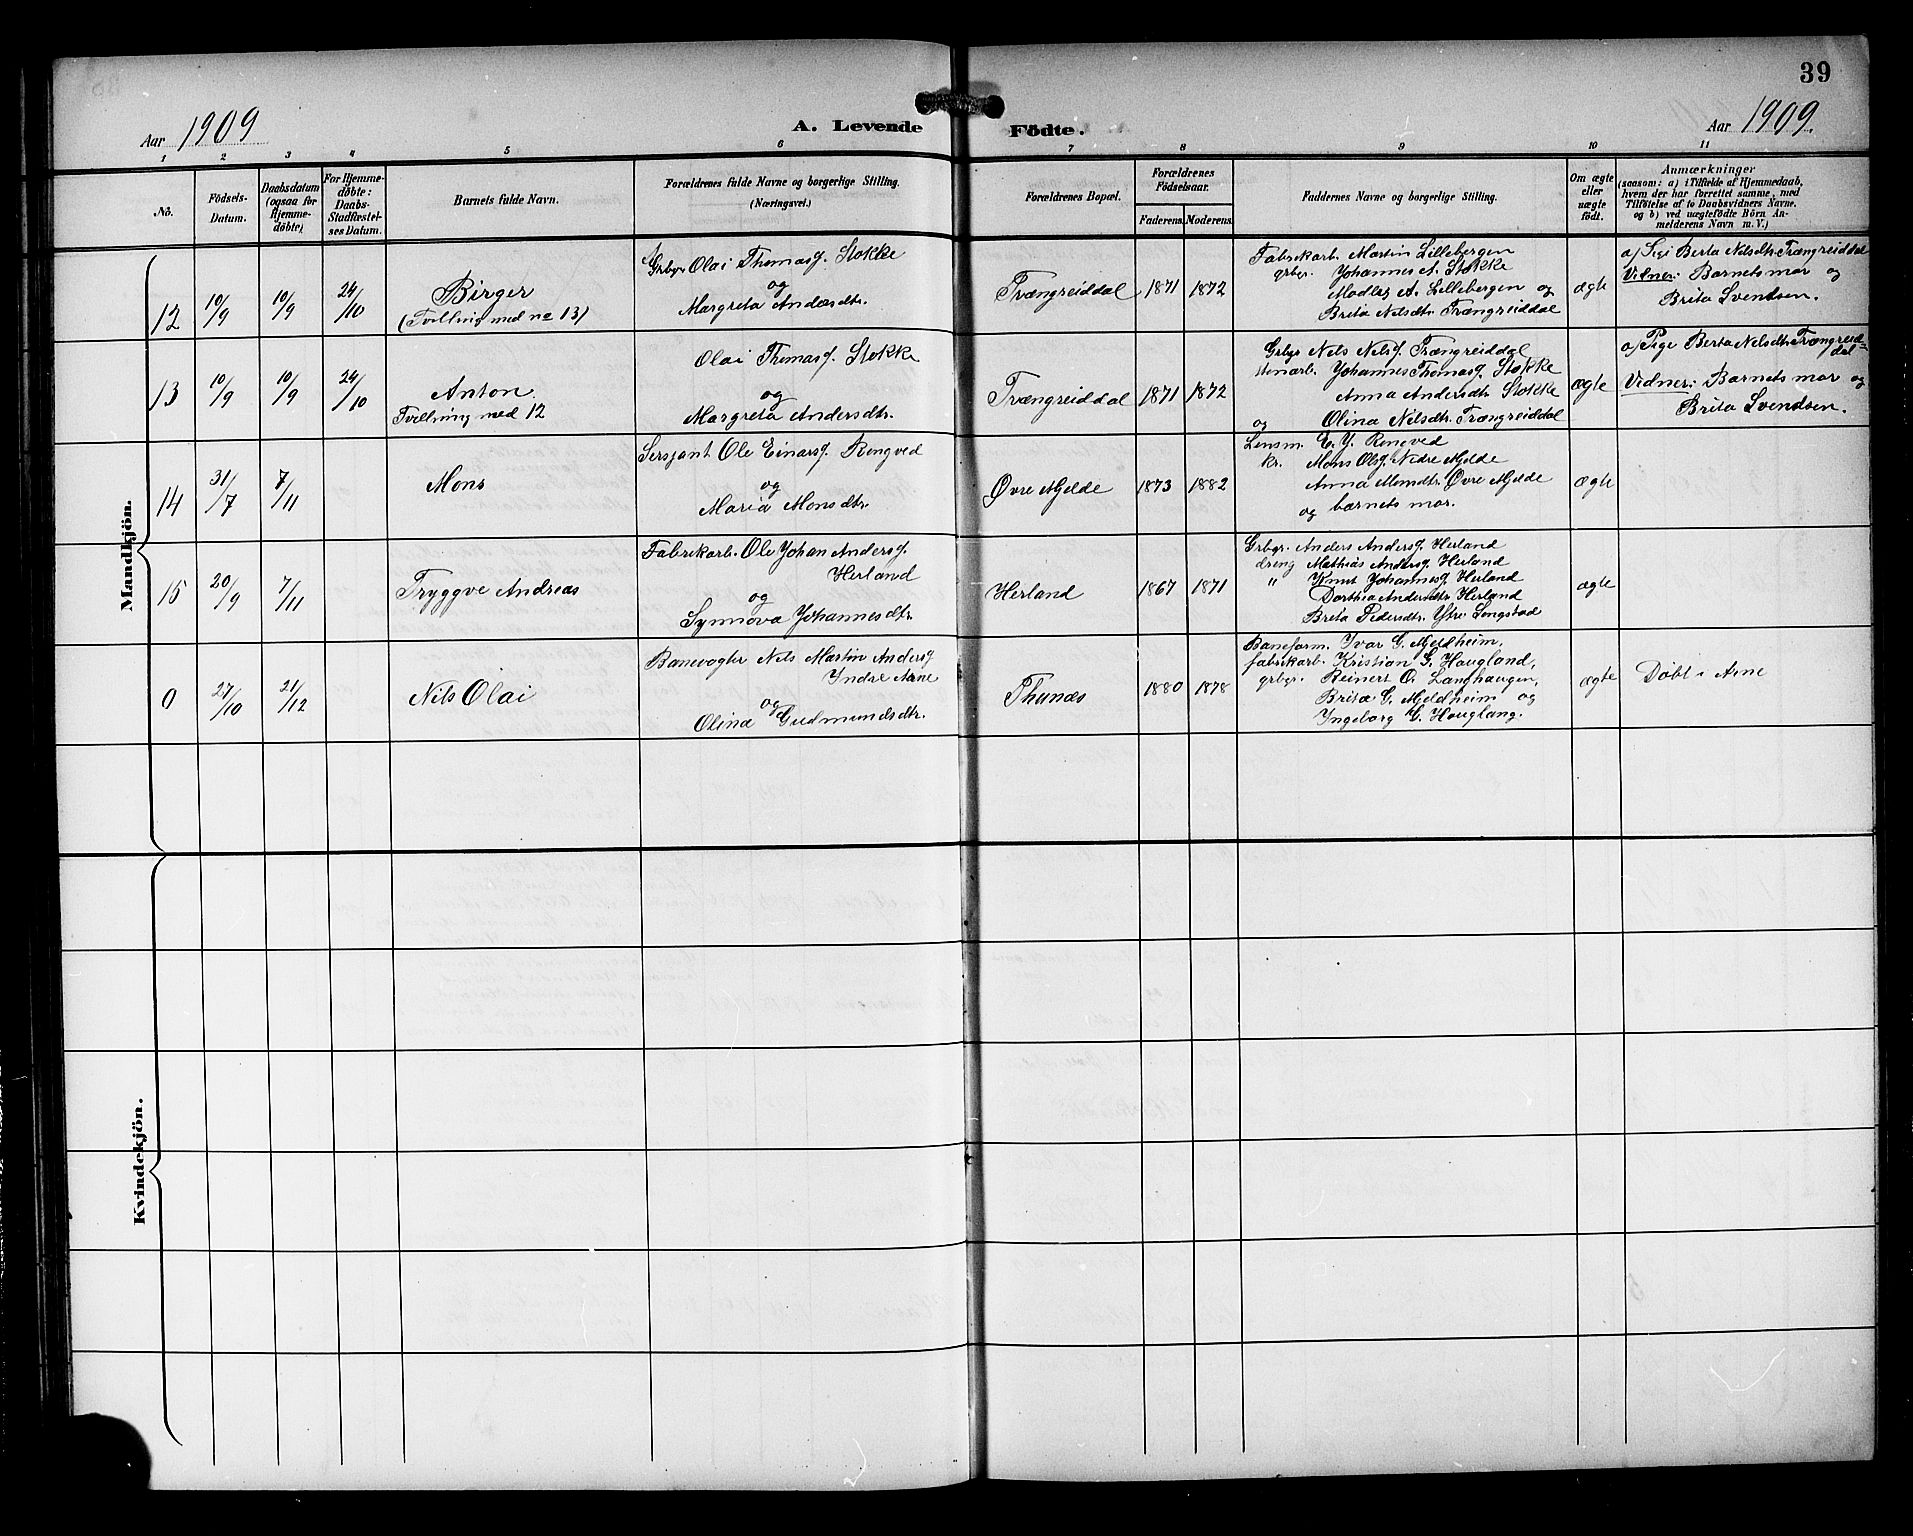 39
Aar 1909
A. Levende Födte.
Aar 1909.
1 2 3 4 5 6 7 8 9 10 11
No.
Födsels-
Datum.
Daabsdatum
(ogsaa for
Hjemme-
döbte)
For Hjemme-
döbte:
Daabs-
Stadfæstel-
ses Datum.
Barnets fulde Navn.
Forældrenes fulde Navne og borgerlige Stilling.
(Næringsvei.)
Forældrenes Bopæl.
Forældrenes
Födselsaar.
Faderens. Moderens.
Faddernes Navne og borgerlige Stilling.
Om ægte
eller
uægte
födt.
Anmærkninger
(saasom: a) i Tilfælde af Hjemmedaab,
hvem der har forrettet samme, med
Tilföielse af to Daabsvidners Navne,
og b) ved uægtefödte Börn An-
melderens Navn m. V.)
Mandkjön.
12 10/9 10/9 24/10
Birger
(Tvilling med no 13)
Grbgr Olai Thomasg. Stokke
og
Margreta Andersdtr.
Trængreiddal 1871 1872
Fabrikarb. Martin Lillebergen
grbgr. Johannes A. Stokke
A. Lillebergen og
Brita Nilsdtr. Trængreiddal
ægte
a/ Pige Berta Nilsdtr. Trængreiddal
Vidner: Barnets mor og
Brita Svendsen.
13 10/9 10/9 24/10
Anton.
Tvilling med 12
Olai Thomasg. Stokke
og
Margreta Andersdtr.
Trængreiddal 1871 1872
Grbgr Nels Nelsg. Trængreiddal
Johannes Thomasg. Stokke
Anna Andersdtr. Stokke
og Olina Nilsdtr. Trængreiddal
ægte
a/ Pige Berta Nelsdtr. Trængreid=
dal
Vidner: Barnets mor og
Brita Svendsen.
14 31/7 7/11
Mons
Sersjant Ole Einarsg. Rengved
og
Maria Monsdtr.
Øvre Mjelde 1873 1882
Lensm. E. Y. Rengved
kr. Mons Olsg. Nedre Mjelde
Anna Monsdtr. Øvre Mjelde
og barnets mor.
ægte
15 20/9 7/11
Tryggve Andreas
Fabrikarb. Ole Johan Andersg.
Herland
og
Synnøva Johannesdtr.
Herland 1867 1871
Grbgr. Anders Andersg. Herland
dreng Mathias Andersg. Herland
" Knut Johannesg. Herland
Dorthea Andersdtr. Herland
Brita Pedersdtr. Ytre
ægte
0 27/10 21/12
Nils Olai
Banevogter Nils Martin Andersg
Indre Arne
og
Olina Gudmundsdtr.
Thunæs 1880 1878
Baneform. Ivar G. Mjeldheim,
fabrikarb. Kristian G. Haugland,
grbgr. Reinert O. Langhaugen,
Brita G. Mjeldheim og
Ingeborg G. Hougland.
ægte
Døbt i Arne
Kvindekjön.